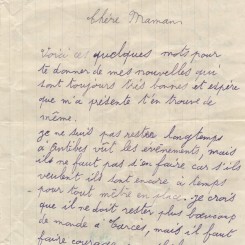 Chère Maman,
Voici ces quelques mots pour
te donner de mes nouvelles qui
sont toujours très bonnes et espère
que m'a présente t'en trouve de
même.
je ne suis pas resté longtemps
à Antibes vut les événement, mais
il ne faut pas s'en faire car s'ils
veulent ils sont encore à temps
pour tout mètre en place. je crois
que il ne doit rester plus beaucoup
de monde à mais il faut
faire courage